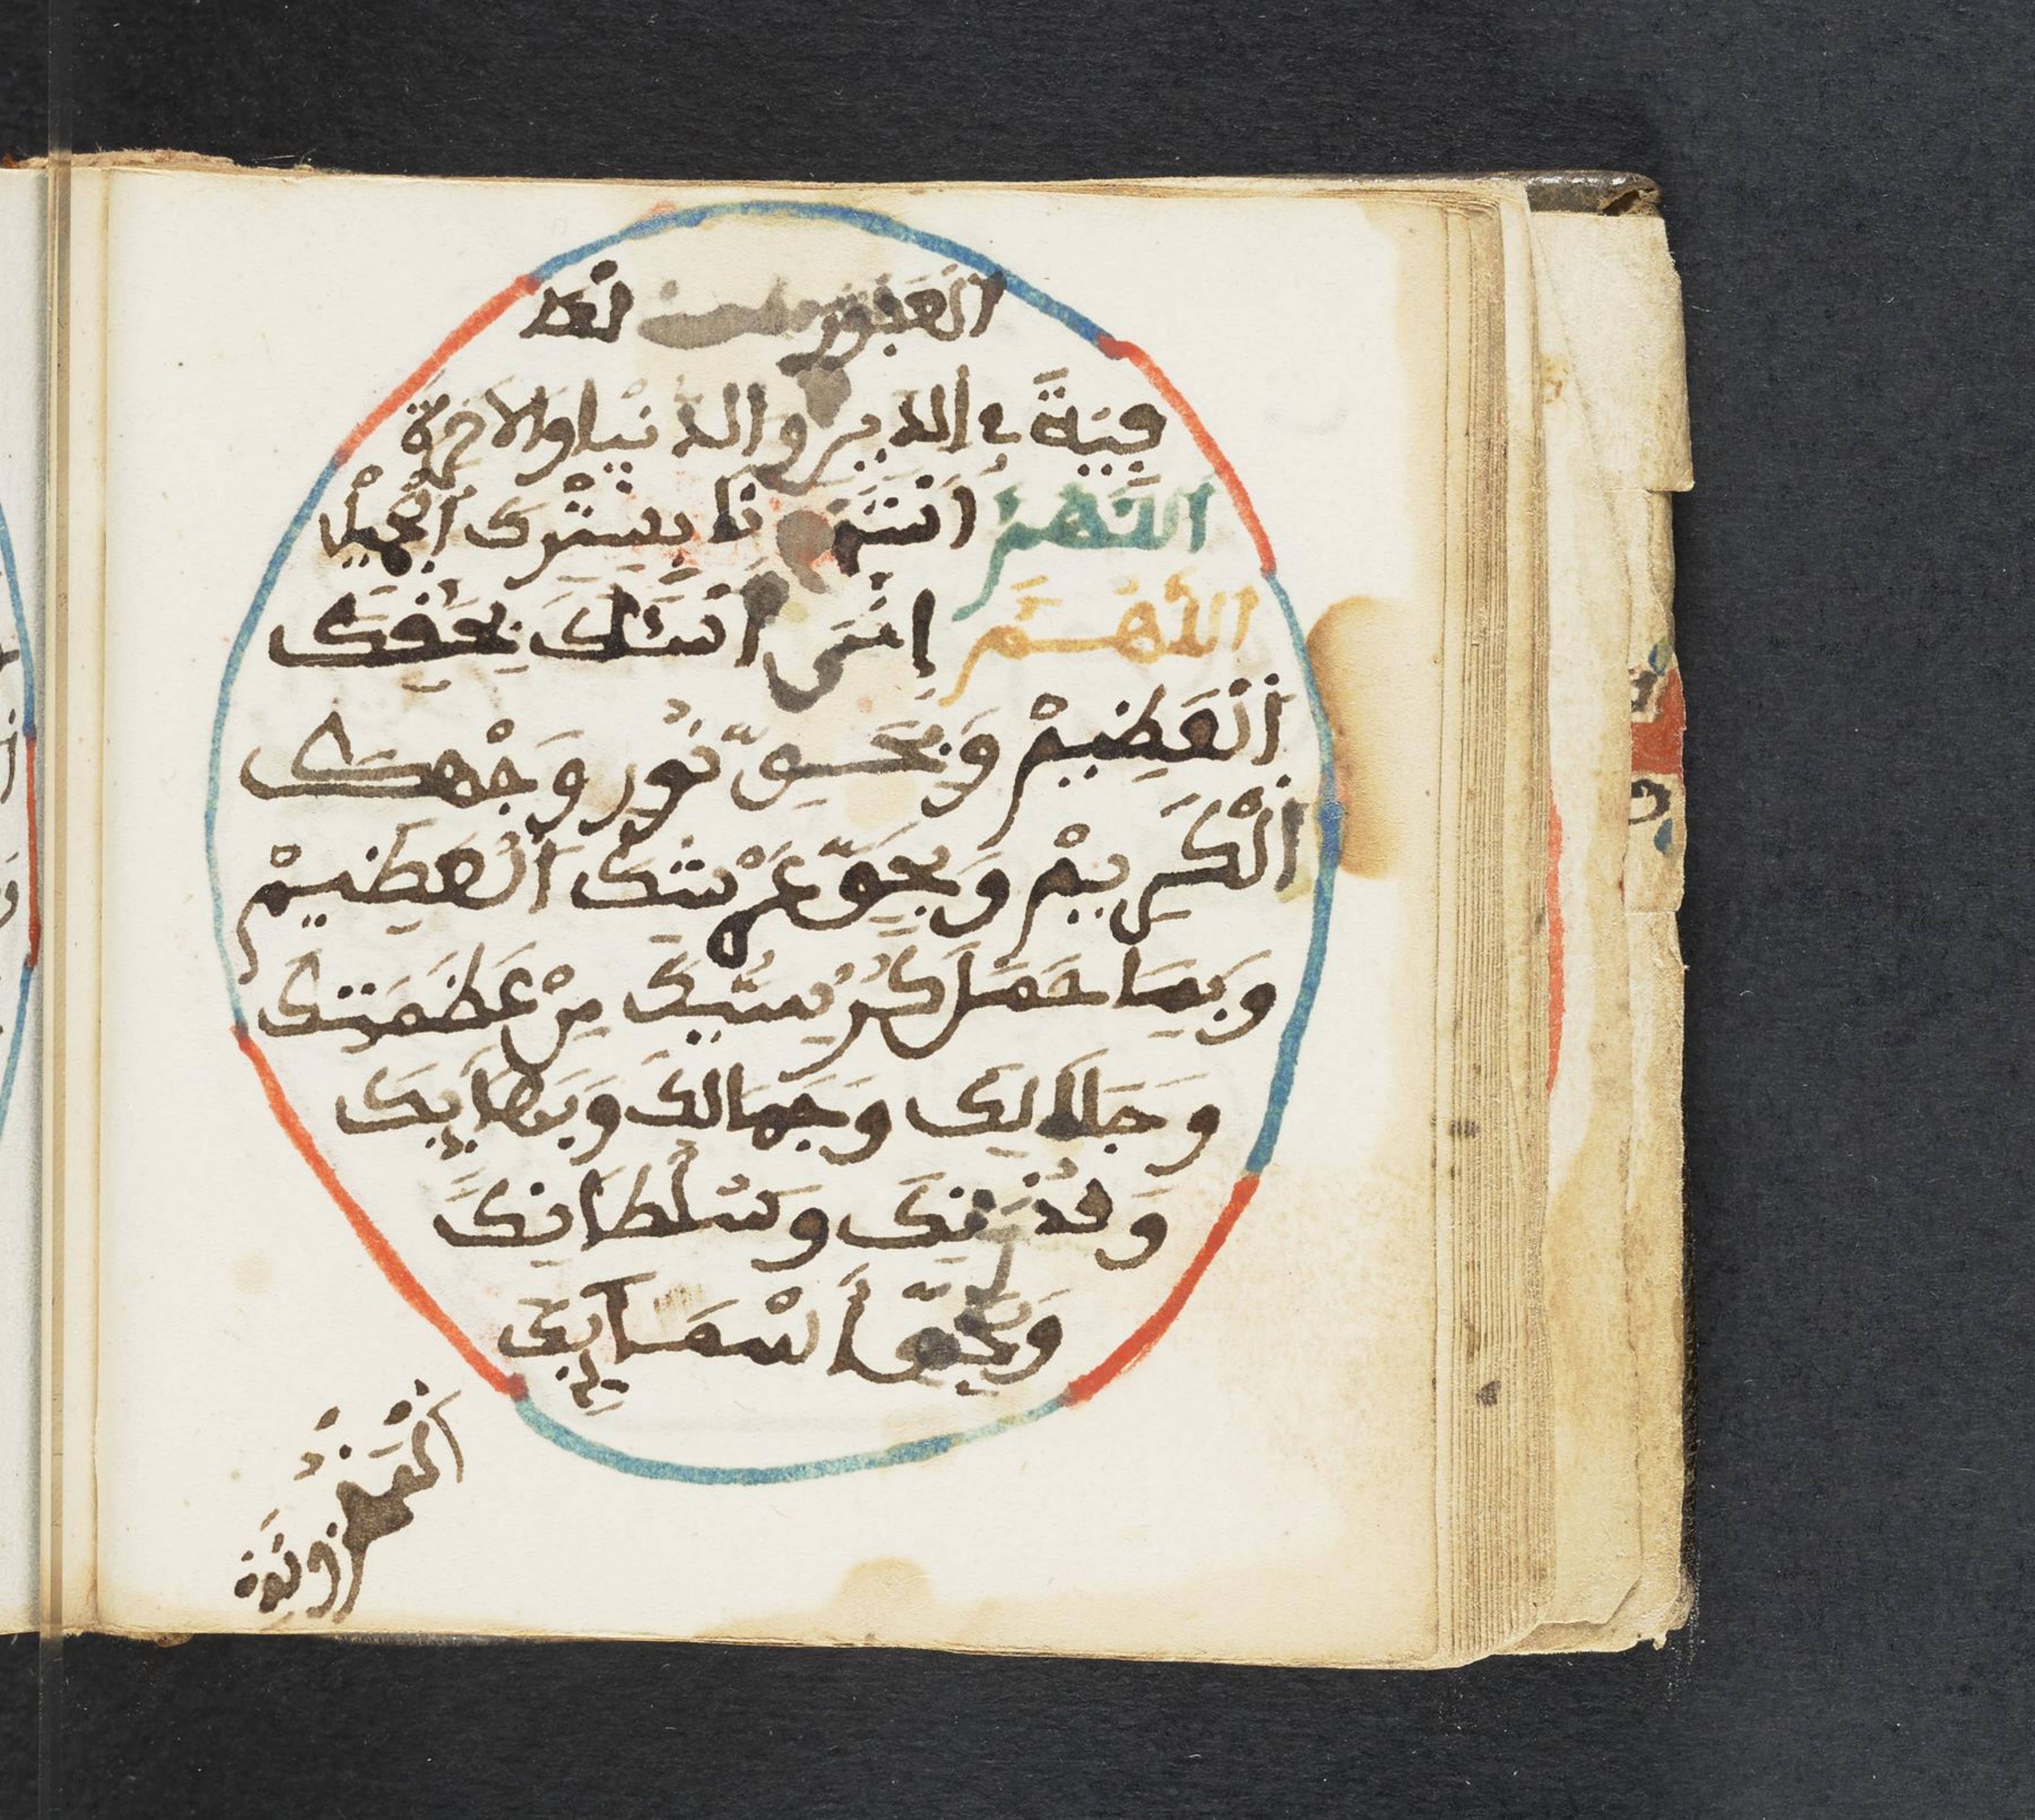 العفو والعا
فية في الدين والدنيا والاخرة
اللهم استرنا بسترك الجميل
اللهم إني اسئلك بحقك
العظيم وبحق نور وجهك
الكريم وبحق عرشك العظيم
وبما حمل كرسيك من عظمتك
وجلالك وجمالك وبهايك
وقدرتك وسلطانك
وبحق أسمايك
المخزونة